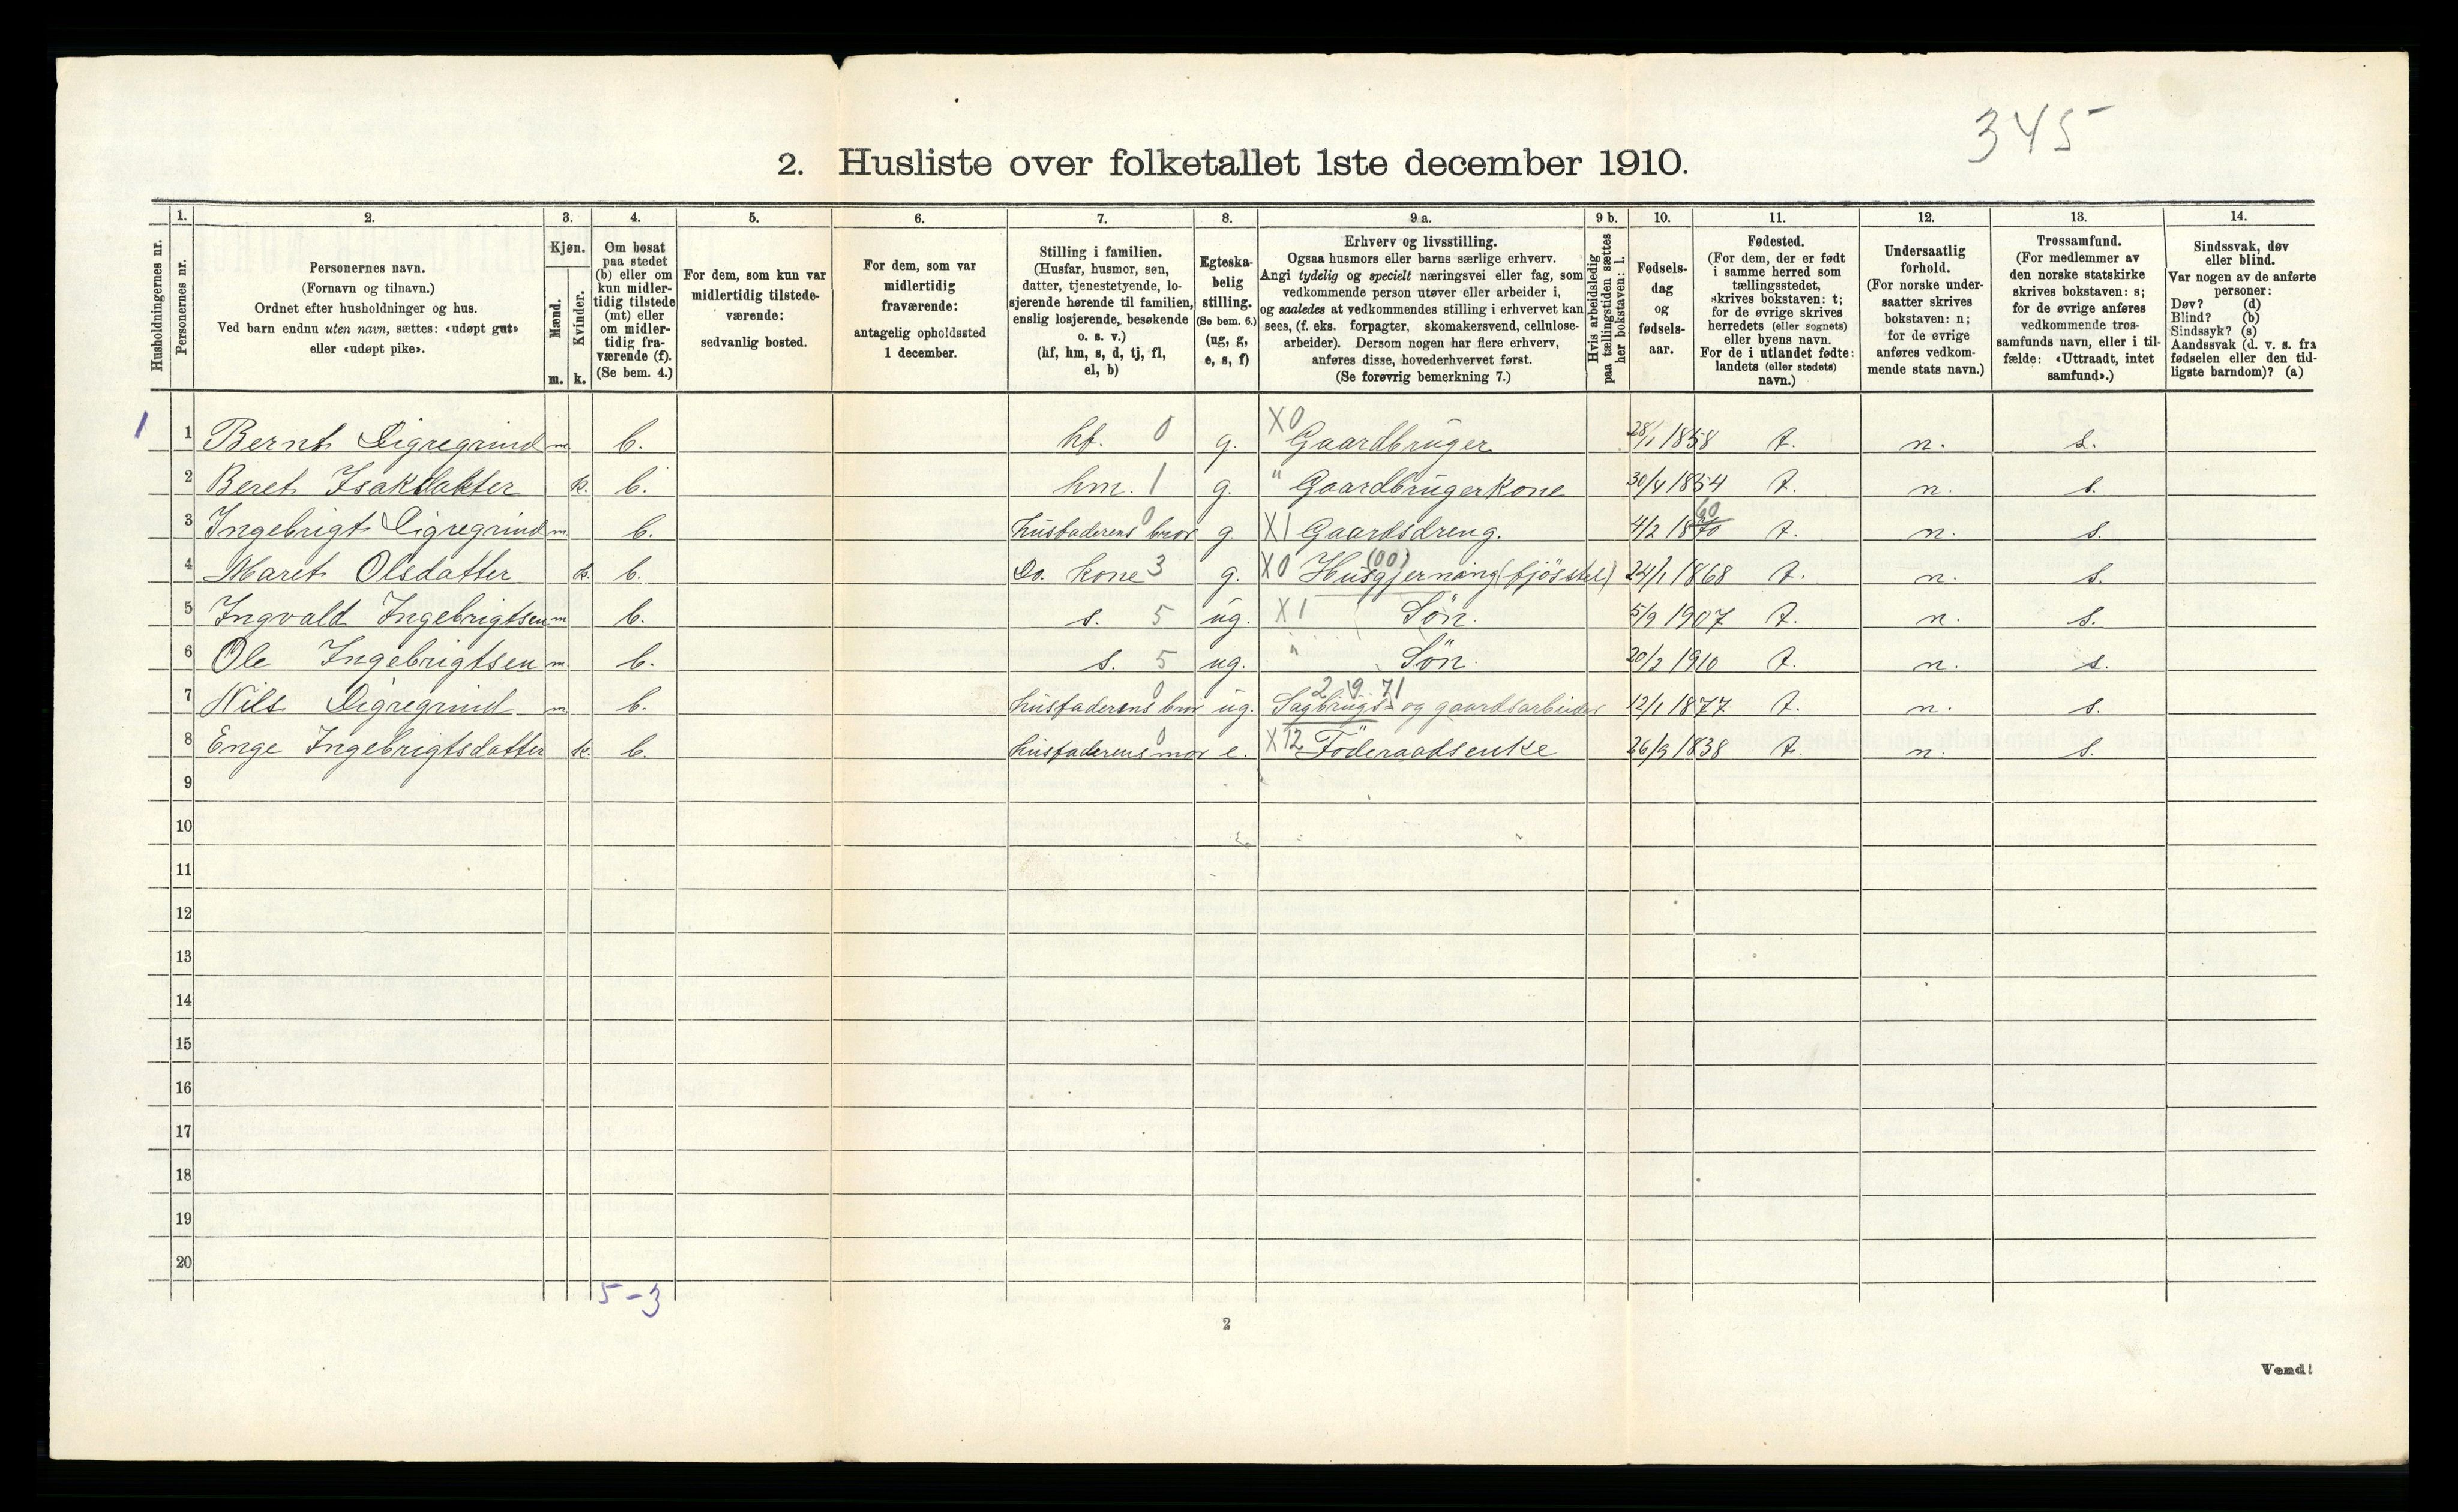 345
2. Husliste over folketallet 1ste december 1910.
Husholdningernes nr.
1.
Personernes nr.
2.
Personernes navn.
(Fornavn og tilnavn.)
Ordnet efter husholdninger og hus.
Ved barn endnu uten navn, sættes: «udøpt gut»
eller «udøpt pike».
3.
Kjøn.
Mænd.
Kvinder.
m. k.
4.
Om bosat
paa stedet
(b) eller om
kun midler-
tidig tilstede
(mt) eller
om midler-
tidig fra-
værende (f).
(Se bem. 4.)
5.
For dem, som kun var
midlertidig tilstede-
værende:
sedvanlig bosted.
6.
For dem, som var
midlertidig
fraværende:
antagelig opholdssted
1 december.
7.
Stilling i familien.
(Husfar, husmor, søn,
datter, tjenestetyende, lo-
sjerende hørende til familien,
enslig losjerende, besøkende
o. s. v.)
(hf, hm, s, d, tj, fl,
el, b)
8.
Egteska-
belig
stilling.
(Se bem. 6.)
(ug, g,
e, s, f)
9 a.
Erhverv og livsstilling.
Ogsaa husmors eller barns særlige erhverv.
Angi tydelig og specielt næringsvei eller fag, som
vedkommende person utøver eller arbeider i,
og saaledes at vedkommendes stilling i erhvervet kan
sees, (f. eks. forpagter, skomakersvend, cellulose-
arbeider). Dersom nogen har flere erhverv,
anføres disse, hovederhvervet først.
(Se forøvrig bemerkning 7.)
9 b.
Hvis arbeidsledig
paa tællingstiden sættes
her bokstaven: l.
10.
Fødsels-
dag
og
fødsels-
aar.
11.
Fødested.
(For dem, der er født
i samme herred som
tællingsstedet,
skrives bokstaven: t;
for de øvrige skrives
herredets (eller sognets)
eller byens navn.
For de i utlandet fødte:
landets (eller stedets)
navn.)
12.
Undersaatlig
forhold.
(For norske under-
saatter skrives
bokstaven: n;
for de øvrige
anføres vedkom-
mende stats navn.)
13.
Trossamfund.
(For medlemmer av
den norske statskirke
skrives bokstaven: s;
for de øvrige anføres
vedkommende tros-
samfunds navn, eller i til-
fælde: «Uttraadt, intet
samfund».)
14.
Sindssvak, døv
eller blind.
Var nogen av de anførte
personer:
Døv? (d)
Blind? (b)
Sindssyk? (s)
Aandssvak (d. v. s. fra
fødselen eller den tid-
ligste barndom)? (a)
1 1 Bernt Digregrind m b. hf. 0 g. X0 Gaardbruger 28/1 1858 t. n. s.
2 Beret Isakdatter k. b. hm. 1 g. " Gaardbrugerkone 30/4 1854 t. n. s.
3 Ingebrigt Digregrind m b. husfaderens bror 0 g. X1 Gaardsdreng. 4/2 1870 60 t. n. s.
4 Maret Olsdatter k. b. Do. kone 3 g. X0 (00) Husgjerning (fjösstel) 24/1 1868 t. n. s.
5 Ingvald Ingebrigtsen m b. s. 5 ug. X1 Sön. 5/9 1907 t. n. s.
6 Ole Ingebrigtsen m b. s. 5 ug. " Sön. 20/2 1910 t. n. s.
7 Nils Digregrind m b. husfaderens bror 0 ug. 2 9 71 Sagbrugs- og gaardsarbeider 12/1 1877 t. n. s.
8 Enge Ingebrigtsdatter k. b. husfaderens mor 0 e. X12 Föderaadsenke 26/9 1838 t. n. s.
9
10
11
12
13
14
15
16
17
18
19
20
5-3
2
Vend!